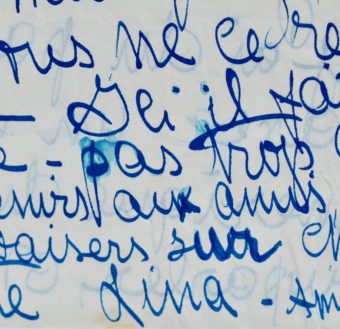 ous ne ce re
— Ici il fa
e - pas trop
enirs aux amis
baisers sur ch
ne Lina - Am